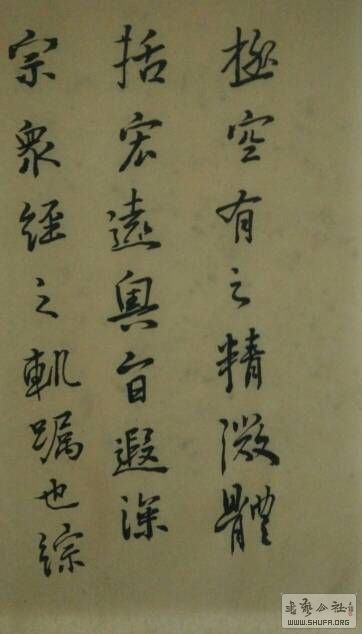 宗衆經之軌躅也綜
括宏遠奥旨遐深
極空有之精微體
書藝公社
WWW.SHUFA.ORG